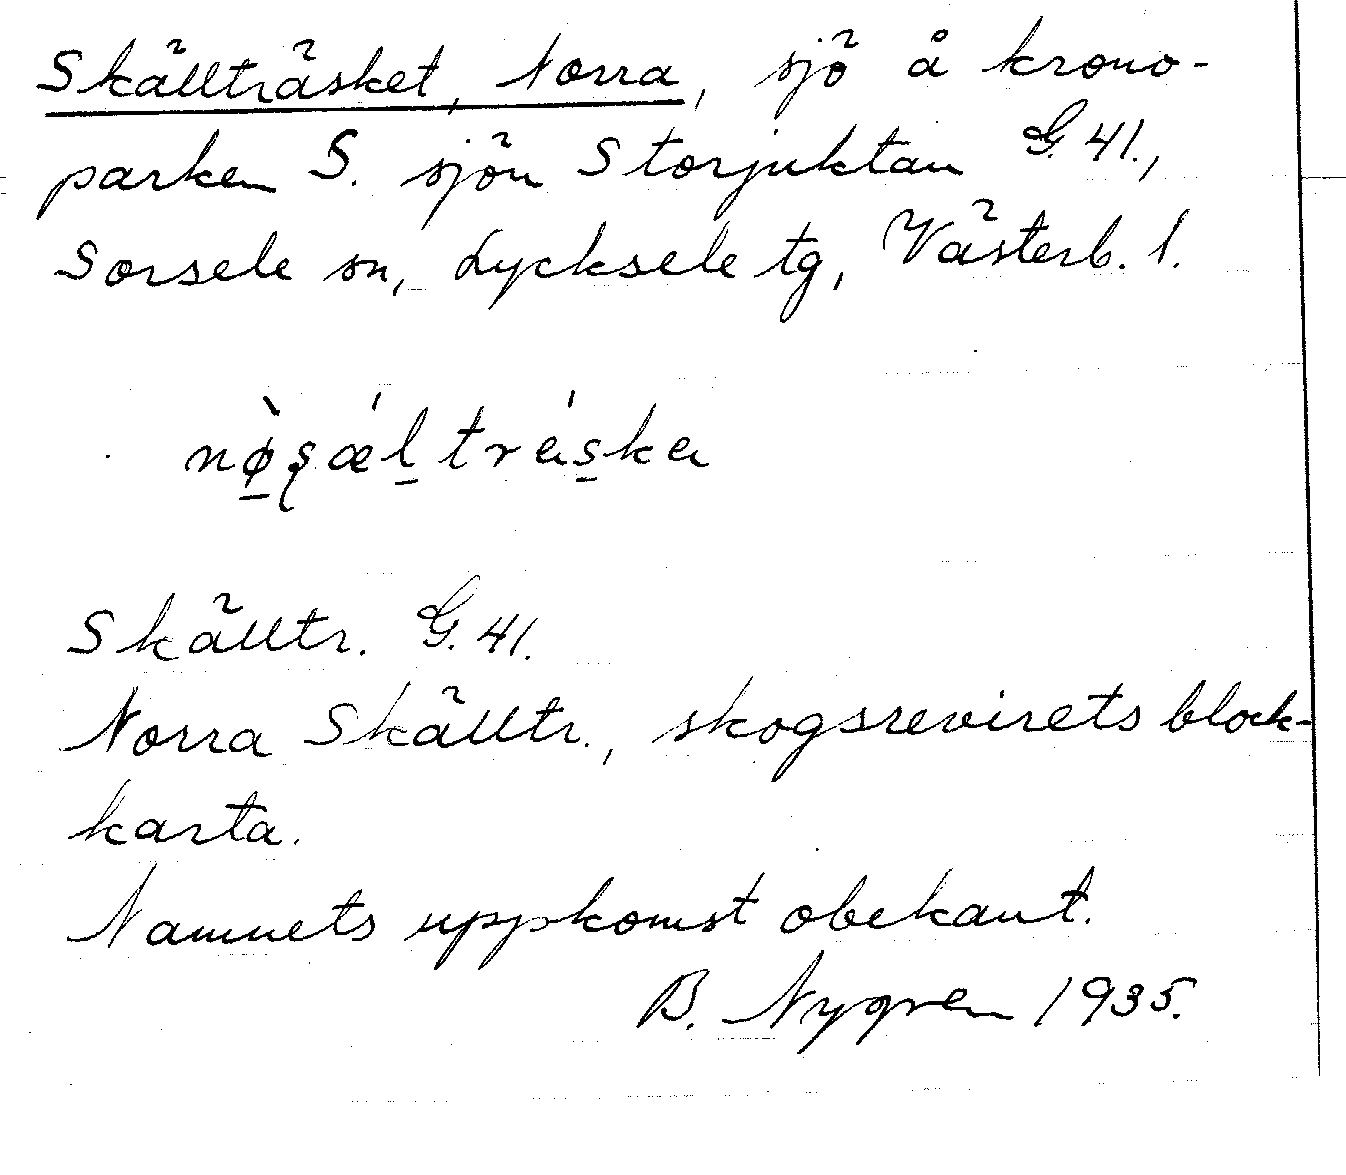 Skällträsket, Norra, sjö å krono-
parken S. sjön Storjuktan G. 41.,
Sorsele sn, Lycksele tg, Västerb. l.
Skälltr. G. 41.
Norra Skälltr., skogsrevirets block-
karta.
Namnets uppkomst obekant.
B. Nygren 1935.